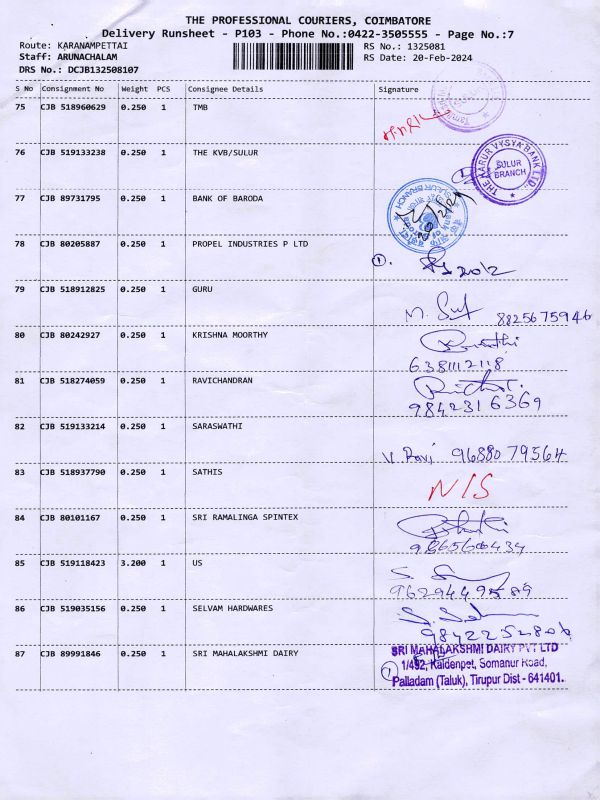 THE PROFESSIONAL COURIERS, COIMBATORE
Delivery Runsheet - P103 - Phone No.:0422-3505555 - Page No.:7
Route: KARANAMPETTAI RS No.: 1325081
Staff: ARUNACHALAM RS Date: 20-Feb-2024
DRS No.: DCJB132508107
S No Consignment No Weight PCS Consignee Details Signature
75 CJB 518960629 0.250 1 TMB
76 CJB 519133238 0.250 1 THE KVB/SULUR
THE KARUR VYSYA BANK LTD. SULUR BRANCH
77 CJB 89731795 0.250 1 BANK OF BARODA
SULUR BRANCH
78 CJB 80205887 0.250 1 PROPEL INDUSTRIES P LTD
1.
79 CJB 518912825 0.250 1 GURU
M. 8825675946
80 CJB 80242927 0.250 1 KRISHNA MOORTHY
6381112118
81 CJB 518274059 0.250 1 RAVICHANDRAN
9842316369
82 CJB 519133214 0.250 1 SARASWATHI
V. Ravi 9688079564
83 CJB 518937790 0.250 1 SATHIS
N/S
84 CJB 80101167 0.250 1 SRI RAMALINGA SPINTEX
85 CJB 519118423 3.200 1 US
86 CJB 519035156 0.250 1 SELVAM HARDWARES
87 CJB 89991846 0.250 1 SRI MAHALAKSHMI DAIRY
SRI MAHALAKSHMI DAIRY PVT LTD
1/492, Kaldenpet, Somanur Road,
Palladam (Taluk), Tirupur Dist - 641401.